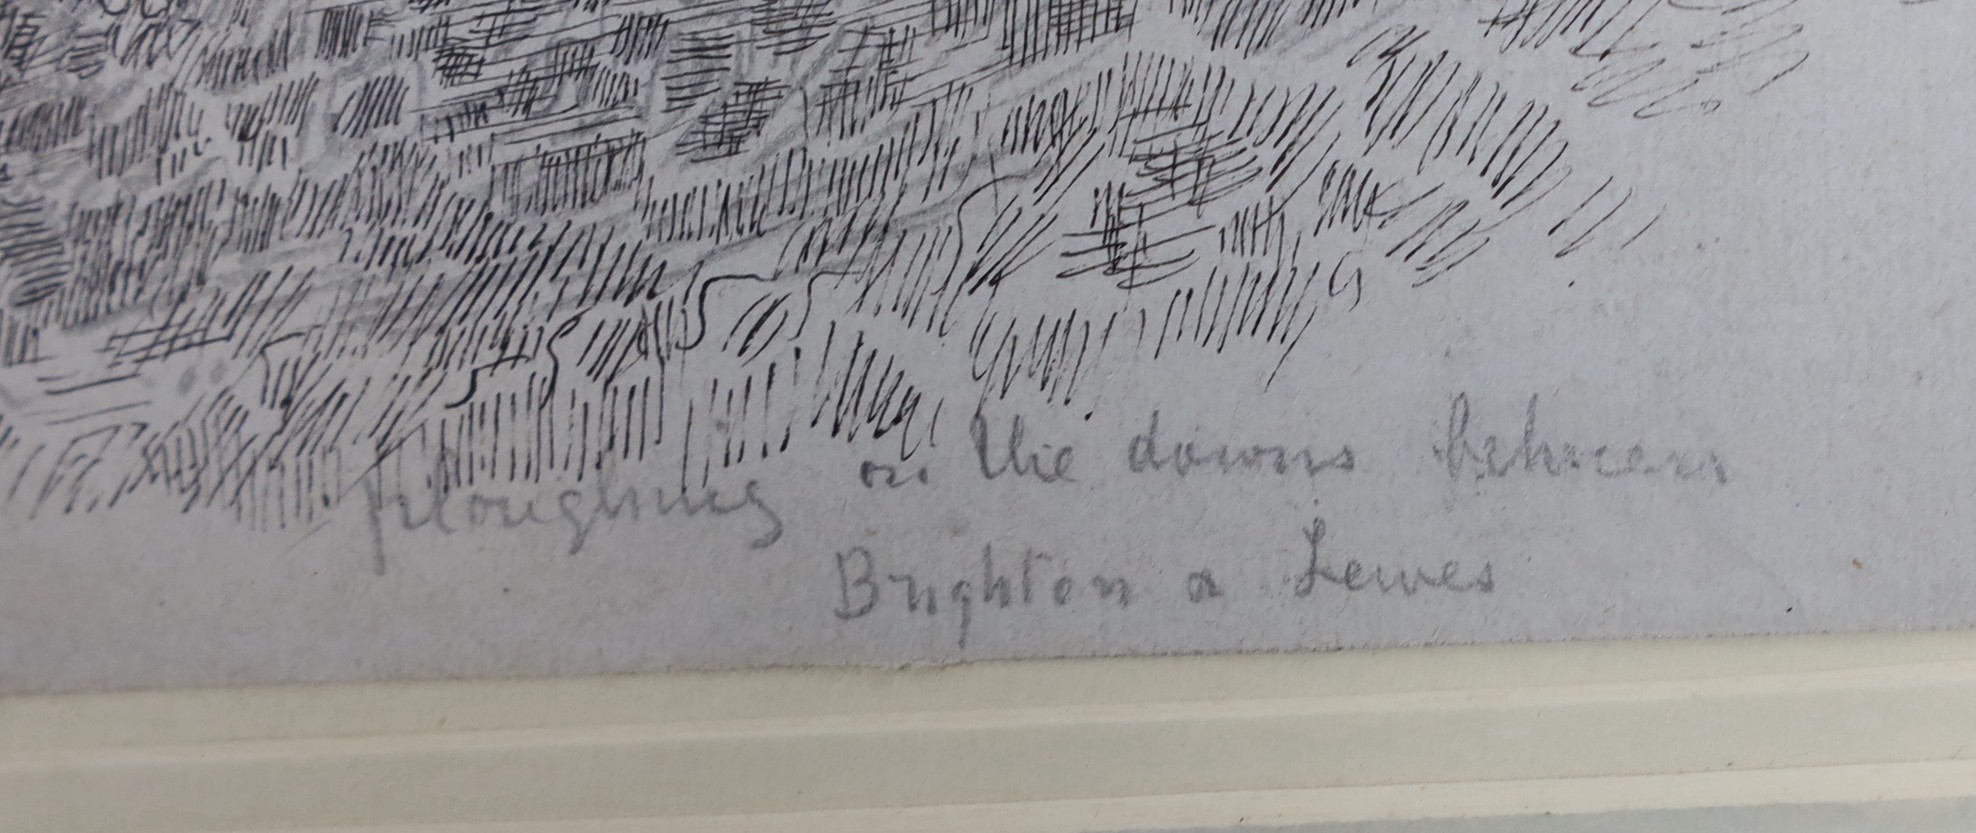 ploughing on the downs between
Brighton a Lewes